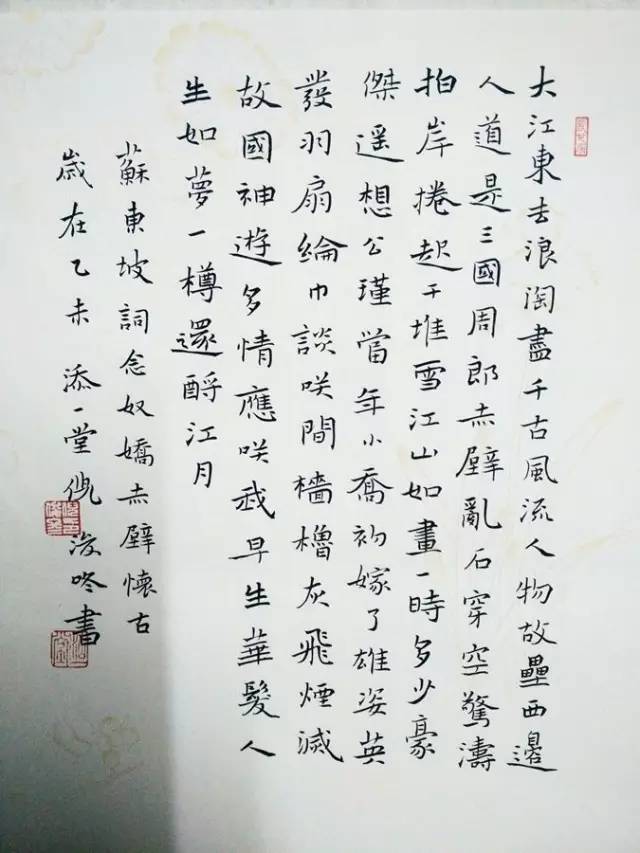 大江東去浪淘盡千古風流人物故壘西邊
人道是三國周郎赤壁亂石穿空驚濤
拍岸捲起千堆雪江山如畫一時多少豪
傑遥想公瑾當年小喬初嫁了雄姿英
發羽扇綸巾談咲間檣櫓灰飛煙滅
故國神遊多情應咲我早生華髮人
生如夢一樽還酹江月
蘇東坡詞念奴嬌赤壁懷古
歲在乙未添一堂書